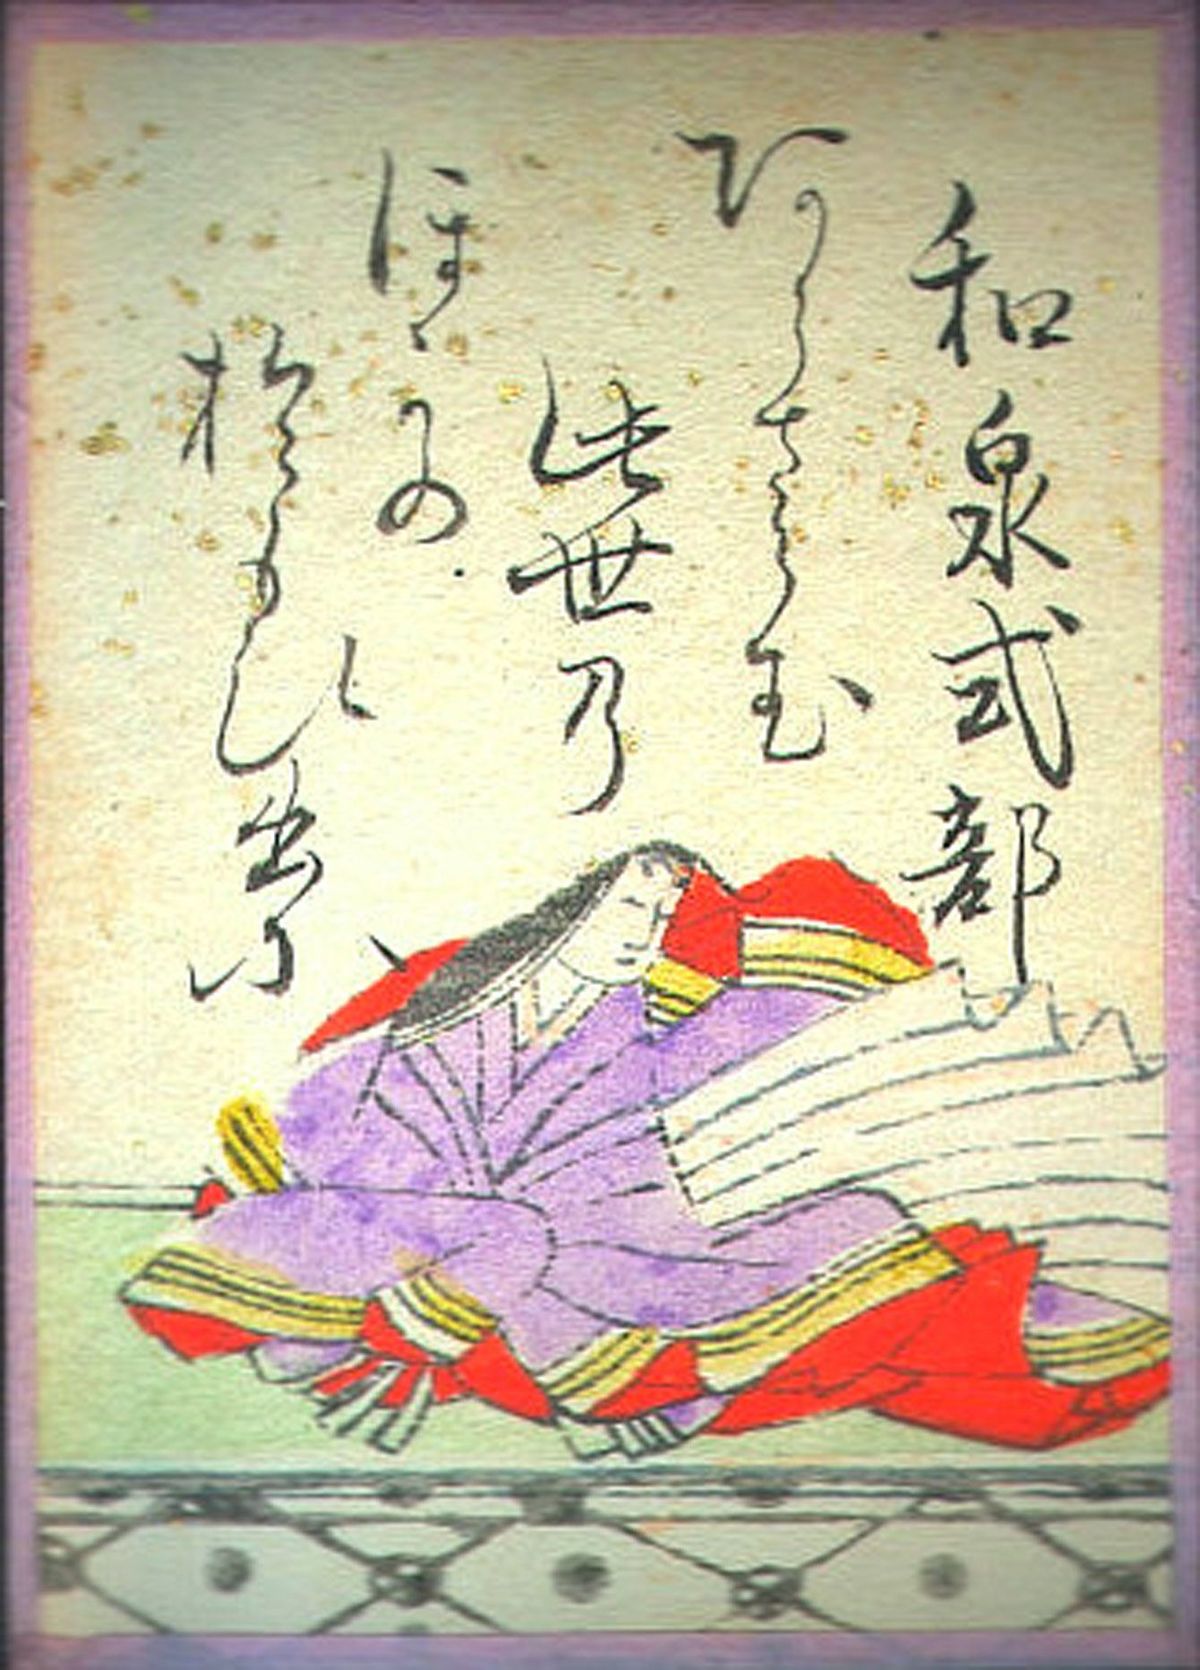 和泉式部
あらさらむ
此世乃
ほかの
おもひ出に